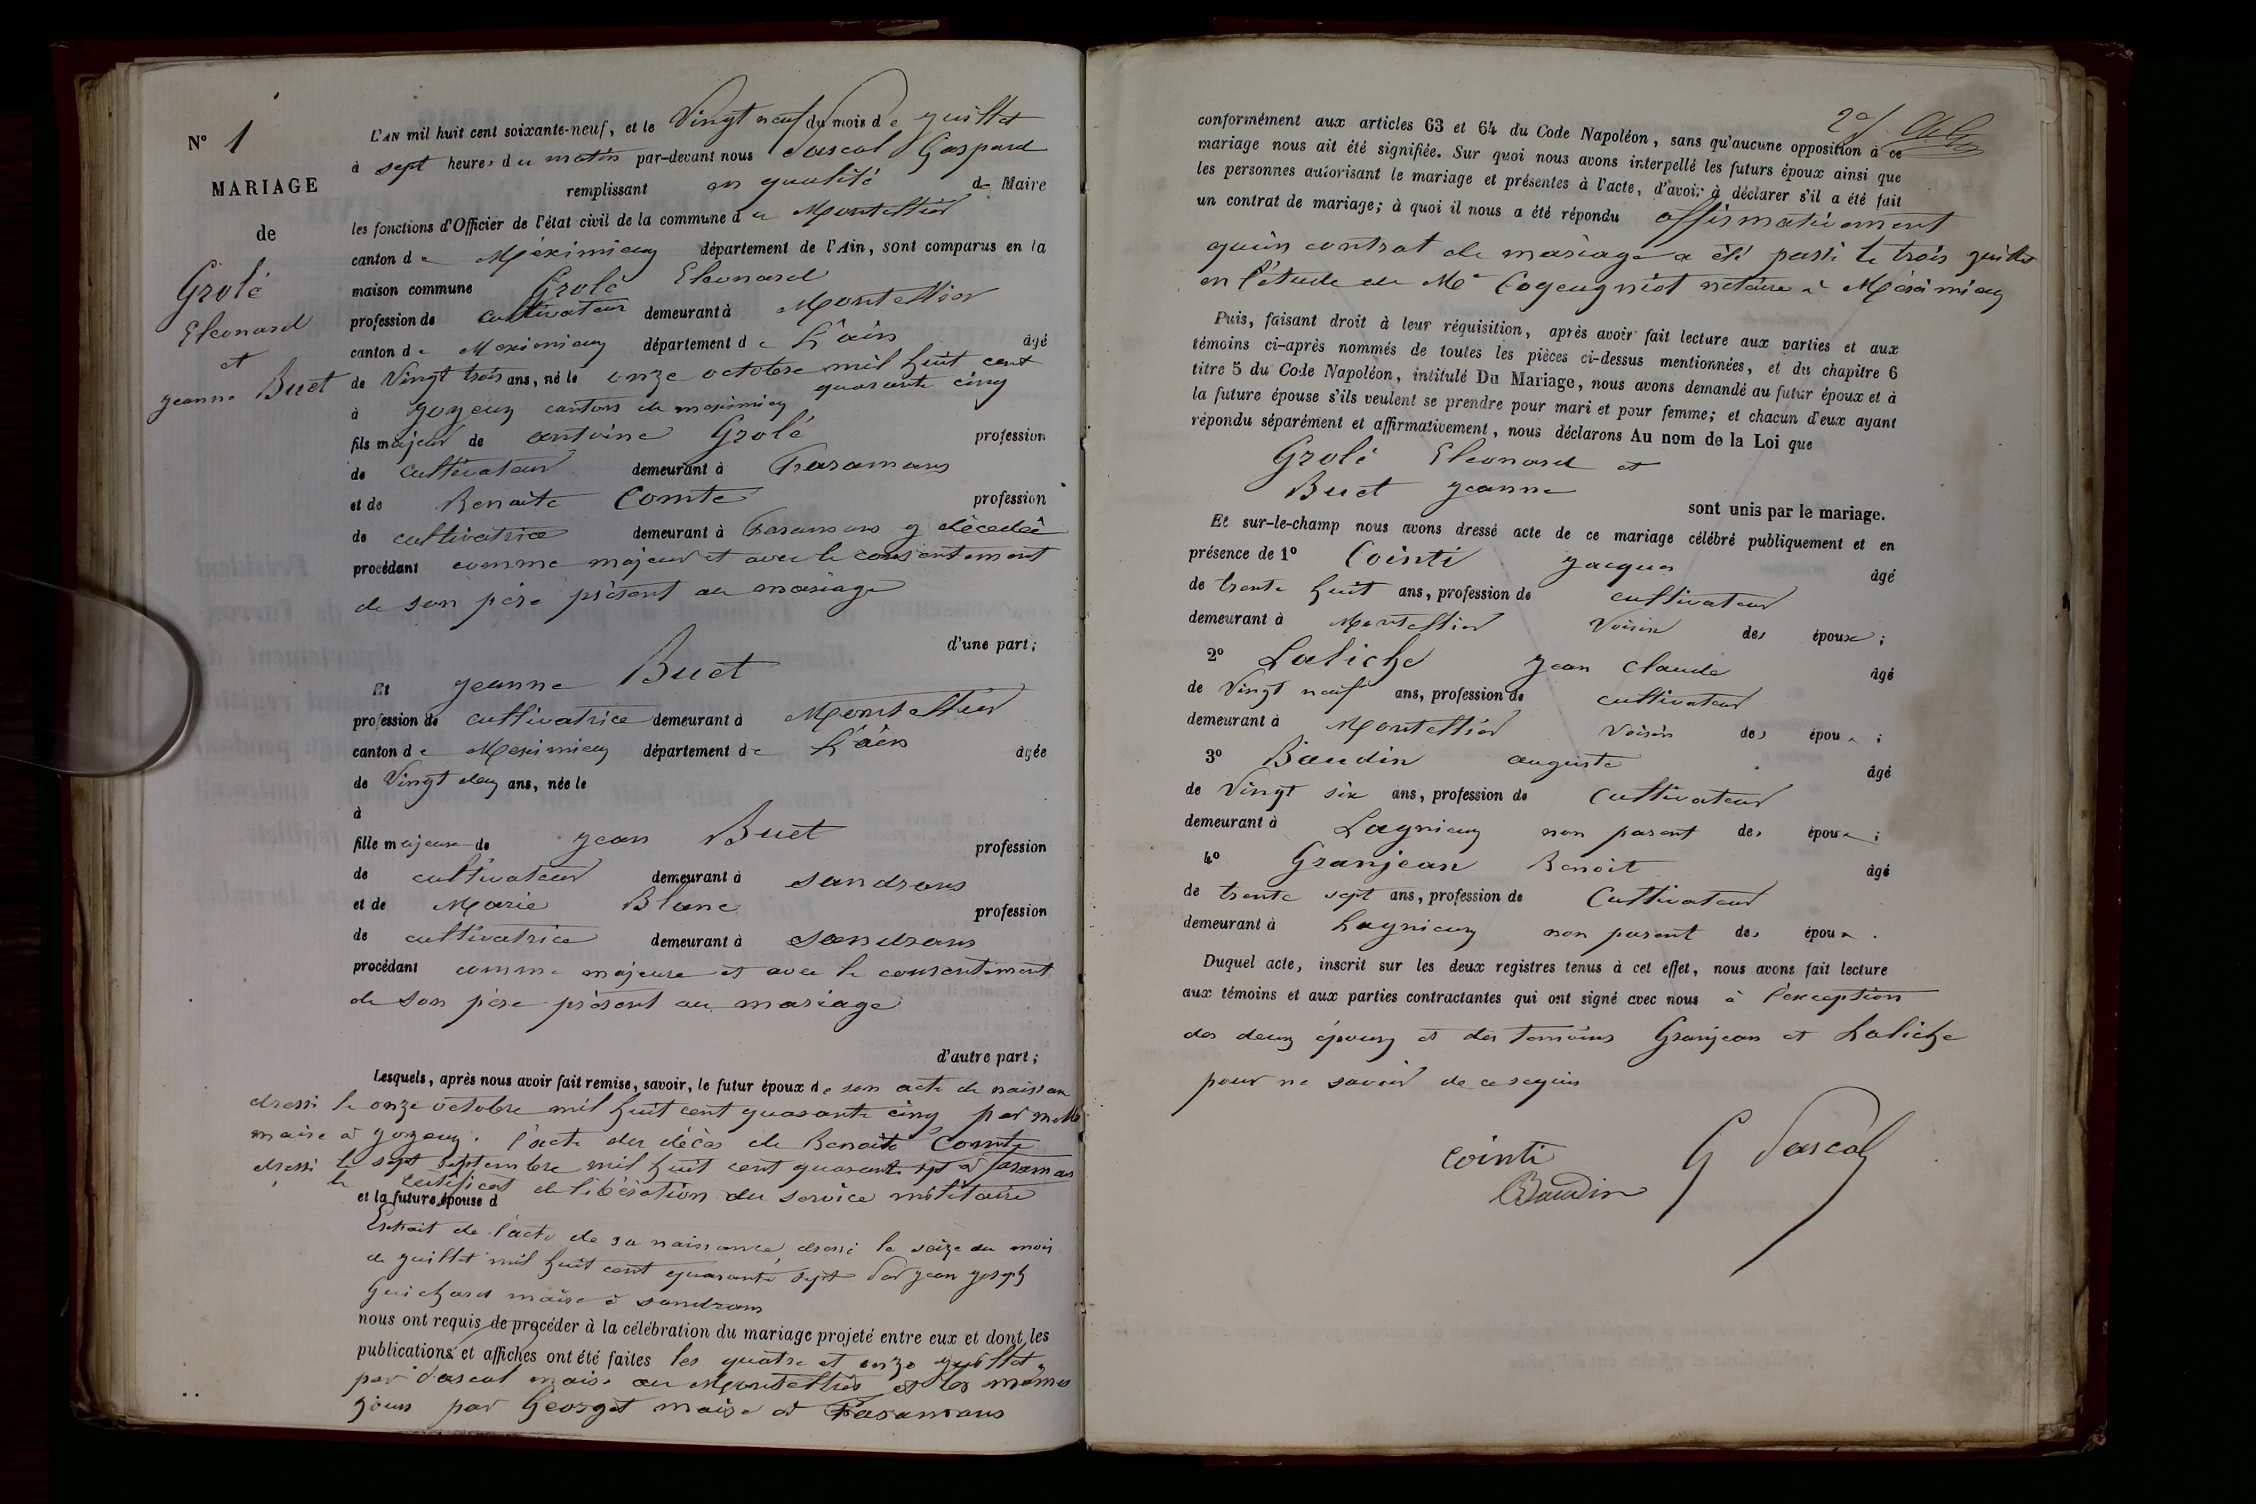 N° 1
MARIAGE
de
Grolé
Eleonard
et
jeanne Buet
L'AN mil huit cent soixante-neuf, et le Vingt neuf du mois de juillet
à sept heures du matin par-devant nous Pascal Gaspard
remplissant en qualité de Maire
les fonctions d'Officier de l'état civil de la commune de Montellier
canton de Méximieux département de l'Ain, sont comparus en la
maison commune Grolé Eleonard
profession de cultivateur demeurant à Montellier
canton de Meximieux département de L'ain âgé
de Vingt trois ans, né le onze octobre mil huit cent
quarante cinq
à joyeux canton de meximieux
fils majeur de antoine Grolé profession
de cultivateur demeurant à Faramans
et de Benoite Comte profession
de cultivatrice demeurant à Faramans y décedée
procédant comme majeur et avec le consentement
de son père présent au mariage
d'une part;
Et jeanne Buet
profession de cultivatrice demeurant à Montellier
canton de Meximieux département de L'ain âgée
de Vingt deux ans, née le
à
fille majeure de jean Buet profession
de cultivateur demeurant à sandrans
et de Marie Blanc profession
de cultivatrice demeurant à sandrans
procédant comme majeure et avec le consentement
de son père présent au mariage
d'autre part;
Lesquels, après nous avoir fait remise, savoir, le futur époux de son acte de naissan
dressé le onze octobre mil huit cent quarante cinq par
maire à joyeux. l'acte des décès de Benoite Comte
dressé le sept septembre mil huit cent quarante sept à faramans
le certificat de libération du service militaire
et la future épouse d
Extrait de l'acte de sa naissance dressé le seize du mois
de juillet mil huit cent quarante sept par jean joseph
Guichard maire à sandrans
nous ont requis de procéder à la célébration du mariage projeté entre eux et dont les
publications et affiches ont été faites les quatre et onze juillet
par Pascal maire au Montellier et les mêmes
jours par Georget maire à Faramans
2e f.
conformément aux articles 63 et 64 du Code Napoléon, sans qu'aucune opposition à ce
mariage nous ait été signifiée. Sur quoi nous avons interpellé les futurs époux ainsi que
les personnes autorisant le mariage et présentes à l'acte, d'avoir à déclarer s'il a été fait
un contrat de mariage; à quoi il nous a été répondu affirmativement
qu'un contrat de mariage a été passé le trois juillet
en l'étude de Me Cogeugniot notaire à Méximieux
Puis, faisant droit à leur réquisition, après avoir fait lecture aux parties et aux
témoins ci-après nommés de toutes les pièces ci-dessus mentionnées, et du chapitre 6
titre 5 du Code Napoléon, intitulé Du Mariage, nous avons demandé au futur époux et à
la future épouse s'ils veulent se prendre pour mari et pour femme; et chacun d'eux ayant
répondu séparément et affirmativement, nous déclarons Au nom de la Loi que
Grolé Eleonard et
Buet jeanne
sont unis par le mariage.
Et sur-le-champ nous avons dressé acte de ce mariage célébré publiquement et en
présence de 1° Cointi jacques âgé
de trente huit ans, profession de cultivateur
demeurant à Montellier Voisin des époux;
2° Laliche jean claude âgé
de Vingt neuf ans, profession de cultivateur
demeurant à Montellier Voisin des époux;
3° Baudin auguste âgé
de Vingt six ans, profession de Cultivateur
demeurant à Lagnieux non parent des époux;
4° Granjean Benoit âgé
de trente sept ans, profession de Cultivateur
demeurant à Lagnieux non parent des époux.
Duquel acte, inscrit sur les deux registres tenus à cet effet, nous avons fait lecture
aux témoins et aux parties contractantes qui ont signé avec nous à l'exception
des deux époux et des temoins Granjean et Laliche
pour ne savoir de ce requis
Cointi G Pascal
Baudin